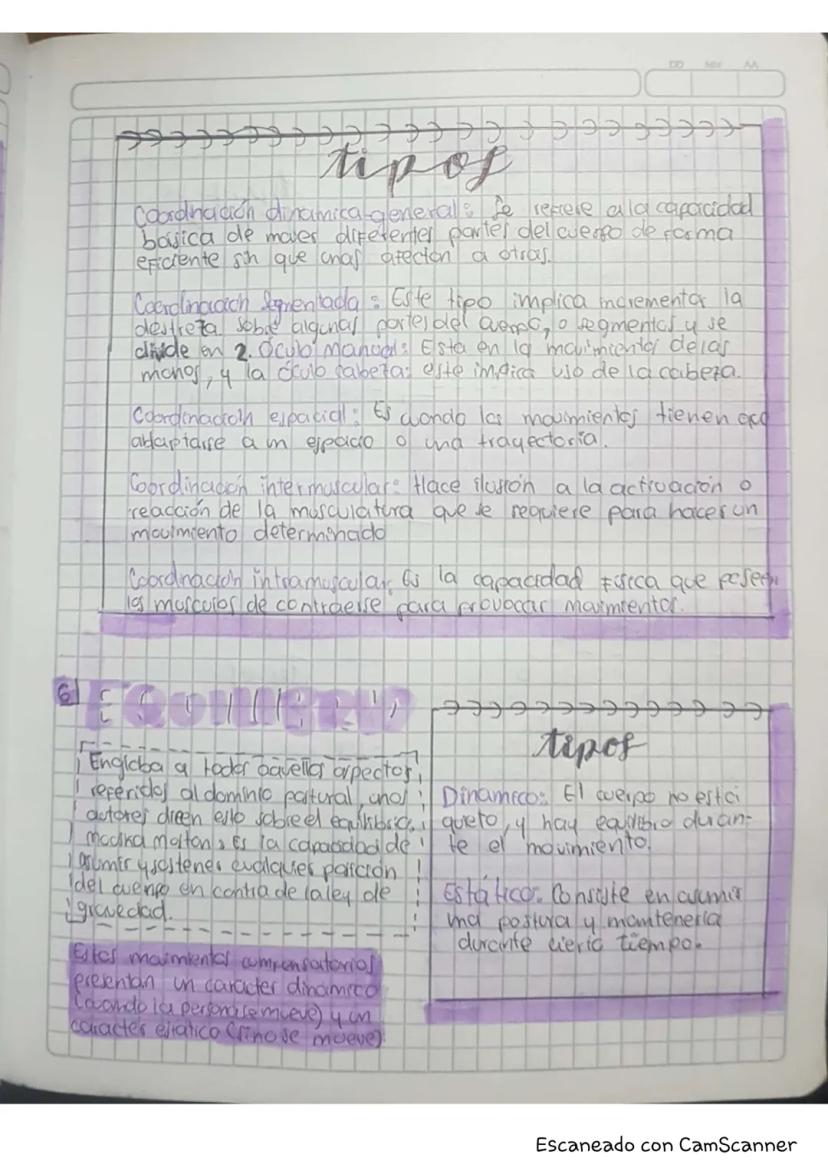 DD MM AA
tipos
Coordinación dinamica general: Se refiere a la capacidad
básica de mover diferentes partes del cuerpo de forma
eficiente sin que unas afecton a otras.
Coordinación Segmentada: Este tipo implica incrementar la
destreza sobre algunas partes del cuerpo, o segmentos y se
divide en 2. Óculo manual: Esta en la movimientos de las
manos, y la óculo cabeza: este implica uso de la cabeza.
Coordinación espacial: Es cuando los movimientos tienen que
adaptarse a un espacio o una trayectoria.
Coordinación intermuscular: Hace ilusión a la activación o
reacción de la musculatura que se requiere para hacer un
movimiento determinado
Coordinación intramuscular. Es la capacidad Física que poseen
los musculos de contraerse para provocar movimientos.
6)
tipos
Engloba a todos aquellos aspectos
referidos al dominio postural, unos
autores dicen esto sobre el equilibrio.
Es la capacidad de
asumir y sostener cualquier posición
del cuerpo en contra de la ley de
gravedad.
Estos movimientos compensatorios
presentan un caracter dinamico
(cuando la persona se mueve) y un
caracter estatico (si no se mueve)
Dinamico: El cuerpo no está
queto, y hay equilibrio duran-
te el movimiento.
Estático: Consiste en asumir
una postura y mantenerla
durante cierto tiempo.
Escaneado con CamScanner